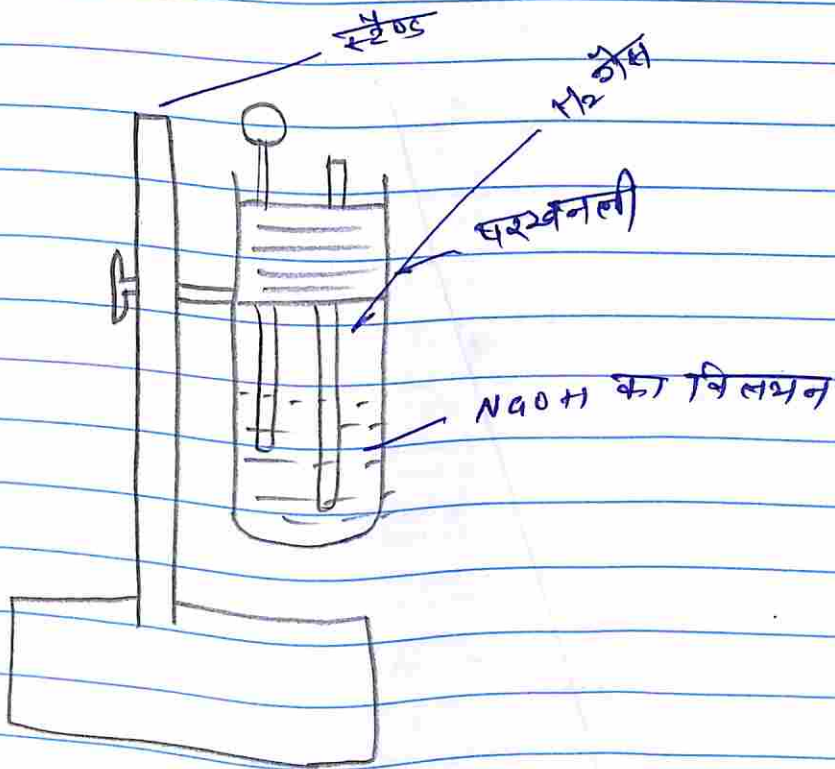 स्टैण्ड
H2 गैस
परखनली
NaOH का विलयन